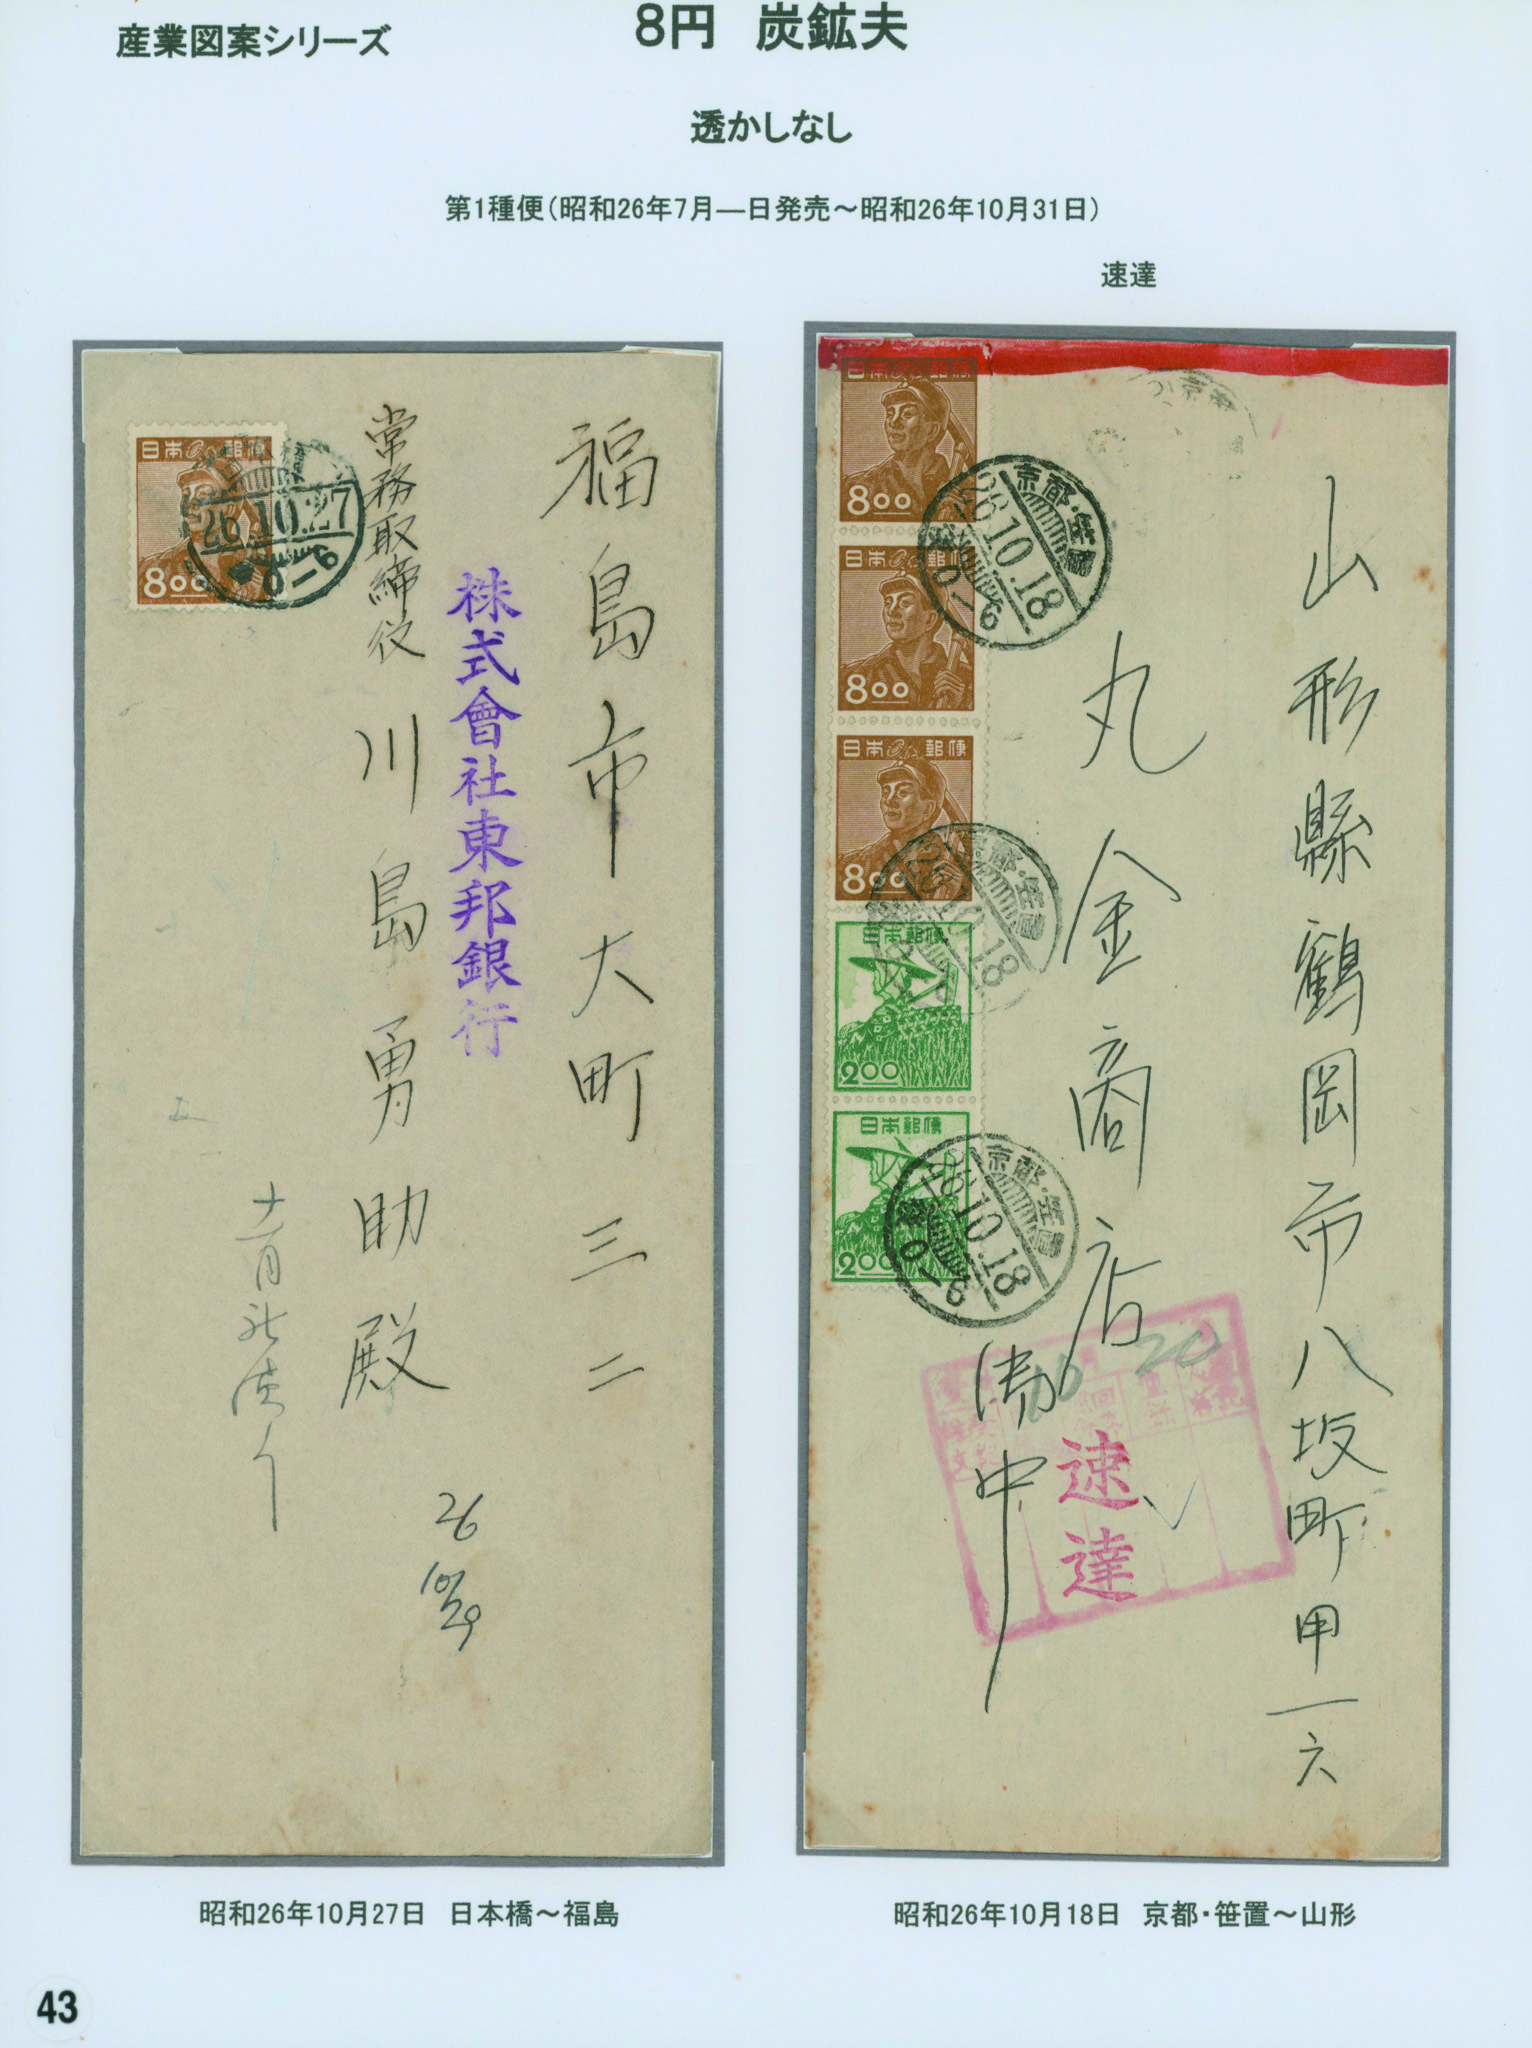 産業図案シリーズ
8円 炭鉱夫
透かしなし
第1種便(昭和26年7月―日発売～昭和26年10月31日)
速達
福島市大町三二
株式會社東邦銀行
常務取締役
川島勇助殿
26
10/29
日本郵便
800
26.10.27
0-6
山形縣鶴岡市八坂町甲一六
丸金商店
御中
速達
20
日本郵便
800
日本郵便
800
日本郵便
800
日本郵便
2.00
日本郵便
2.00
京都・笹置
26.10.18
0-6
京都・笹置
26.10.18
京都・笹置
26.10.18
0-6
昭和26年10月27日 日本橋～福島
昭和26年10月18日 京都・笹置～山形
43